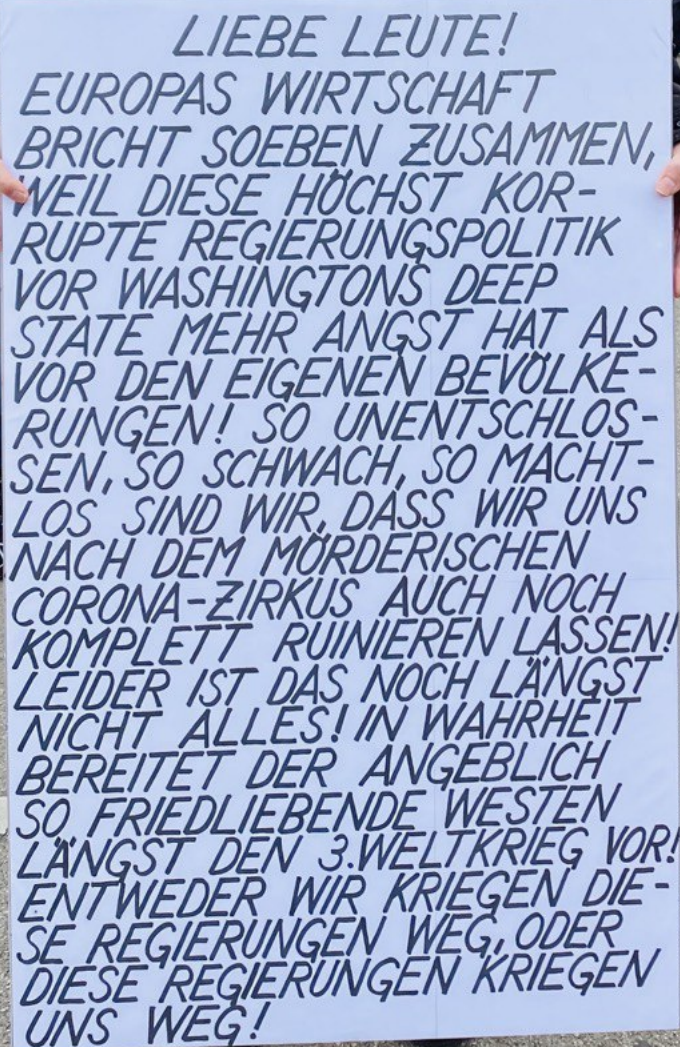 LIEBE LEUTE!
EUROPAS WIRTSCHAFT
BRICHT SOEBEN ZUSAMMEN,
WEIL DIESE HÖCHST KOR-
RUPTE REGIERUNGSPOLITIK
VOR WASHINGTONS DEEP
STATE MEHR ANGST HAT ALS
VOR DEN EIGENEN BEVÖLKE-
RUNGEN! SO UNENTSCHLOS-
SEN, SO SCHWACH, SO MACHT-
LOS SIND WIR, DASS WIR UNS
NACH DEM MÖRDERISCHEN
CORONA-ZIRKUS AUCH NOCH
KOMPLETT RUINIEREN LASSEN!
LEIDER IST DAS NOCH LÄNGST
NICHT ALLES! IN WAHRHEIT
BEREITET DER ANGEBLICH
SO FRIEDLIEBENDE WESTEN
LÄNGST DEN 3.WELTKRIEG VOR!
ENTWEDER WIR KRIEGEN DIE-
SE REGIERUNGEN WEG, ODER
DIESE REGIERUNGEN KRIEGEN
UNS WEG!